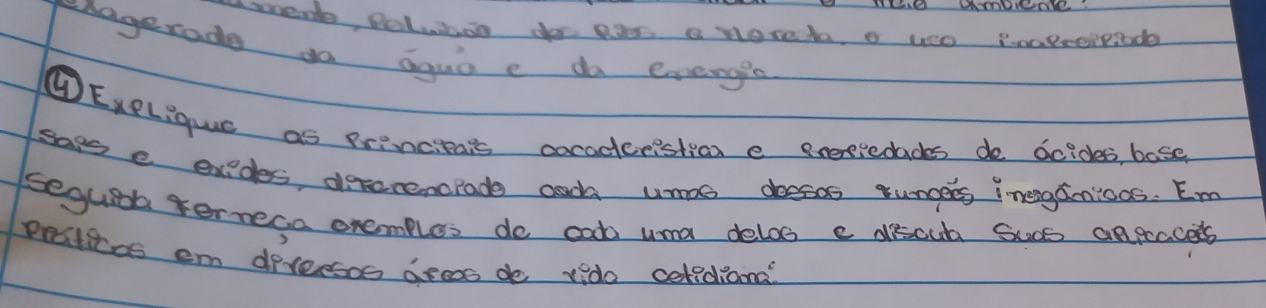 meio ambiente.
exagerado poluição dos rios e o uso inapropriado
da água e da energia
④ Explique as Principais caracteristica e propriedades de ácidos, base,
sais e oxidos, diferenciado cada umas dessas funções inorgânicas. Em
seguida forneça exemplos de cada uma delas e discuta suas aplicações
práticas em diversas áreas de vida cotidiana.